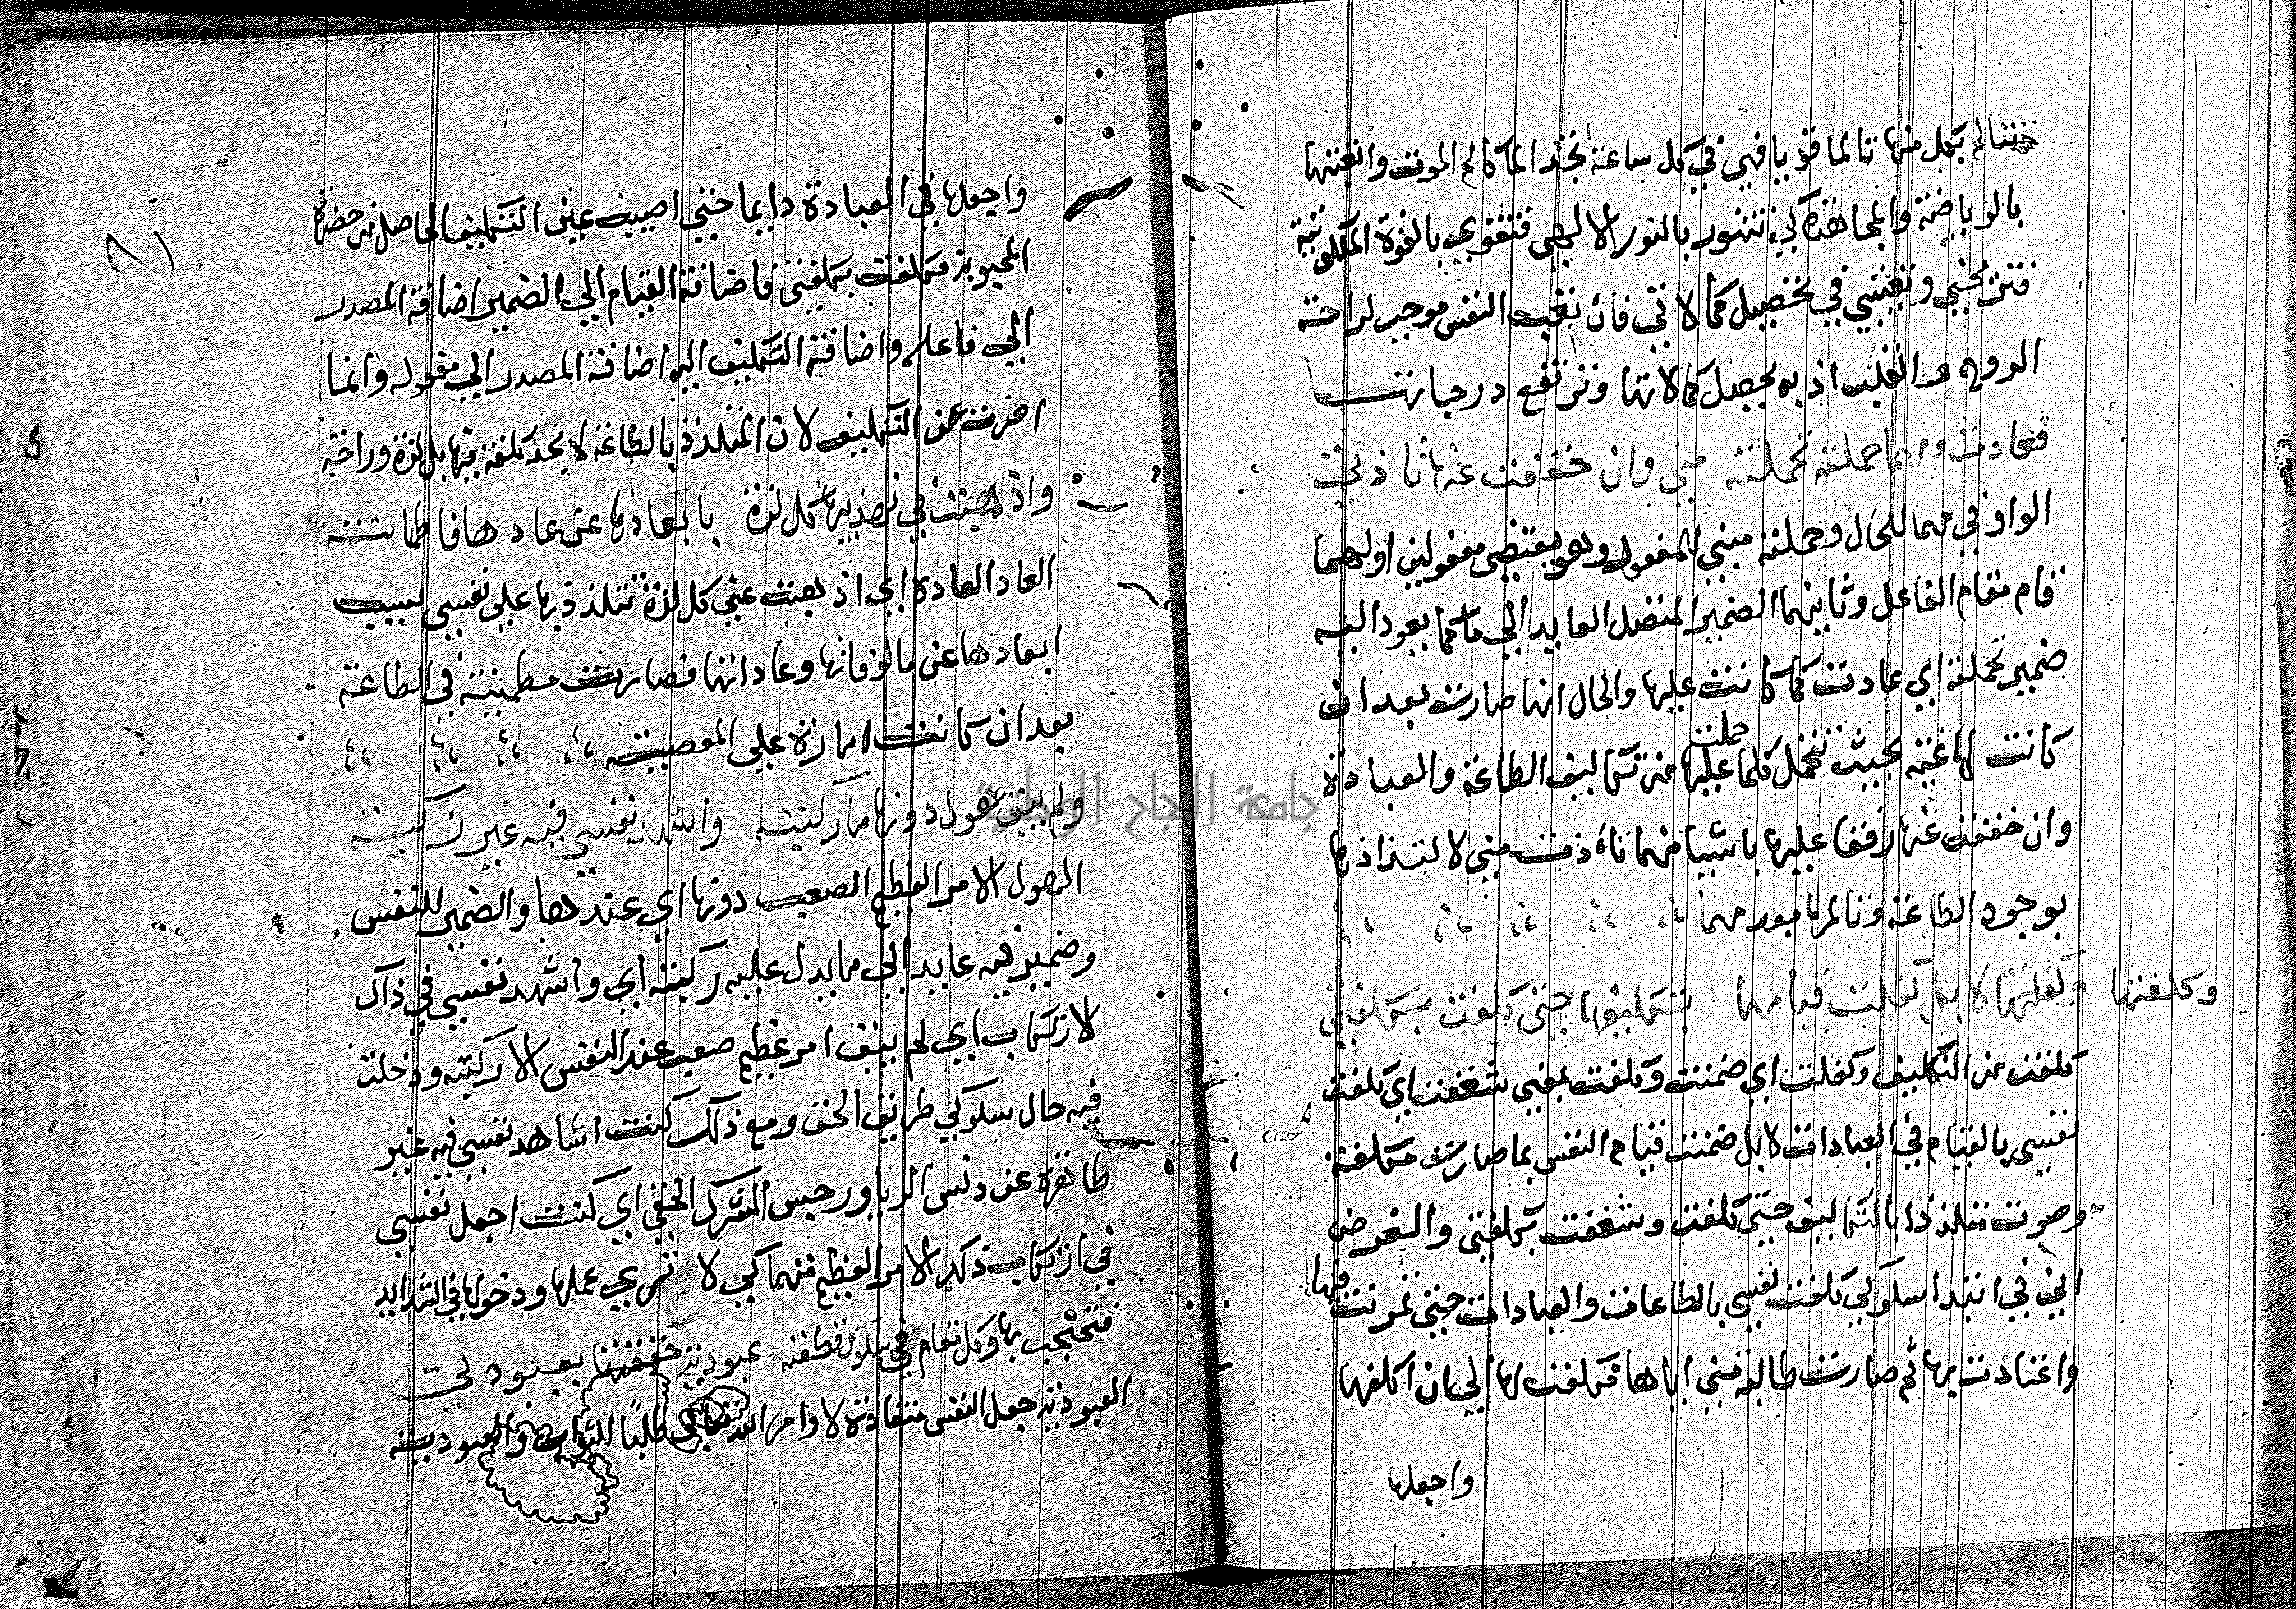 فتتالم بكل منها تالما قويا فهي في كل ساعة تجد الما كالم الموت واتعبتها
بالرياضة والمجاهدة كي تتنور بالنور الالهي فتقوي بالقوة الملكوتية
فتريحني وتعينني في تحصيل كمالاتي فان تعب النفس موجب لراحة
الروح والقلب اذ به يحصل كمالاتها وترتفع درجاتها
فعادت ومهما حملته تحملته مني وان خففت عنها تاذت
الواو في مهما للحال وحملته مبني للمفعول وهو يقتضي مفعولين اولهما
قام مقام الفاعل وثانيهما الضمير المتصل العايد الي ما كما يعود اليه
ضمير تحملته اي عادت كما كانت عليها والحال انها صارت بعد ان
كانت لاغية بحيث تتحمل كلما حملت عليها من تكاليف الطاعة والعبادة
وان خففت عنها رفقا عليها باشيا منهما تاذت مني لالتذاذها
بوجود الطاعة وتالمها بعدمهما
وكلفتها وكفلتها لا بل كفلت قيامها بتكليفها حتي كلفت بكلفتي
كلفت من التكليف وكفلت اي ضمنت وكلفت بمعني شغفت اي كلفت
نفسي بالقيام في العبادات لا بل ضمنت قيام النفس بما صارت مكلفة
وصرت متلذذا بالتكاليف حتي كلفت وشغفت بكلفتي والغرض
اني في ابتدا سلوكي كلفت نفسي بالطاعات والعبادات حتي تمرنت فيها
واعتادت بها ثم صارت طالبة مني اياها فكلفت لها الي ان اكلفها
واجعلها
واجعلها في العبادة دايما حتي اصيب عين التكليف الحاصل من حضرة
المحبوبة فكلفت بكلفتي فاضافة القيام الي الضمير اضافة المصدر
الي فاعله واضافة التكليف اليه اضافة المصدر الي مفعوله وانما
اخرت عن التكليف لان المتلذذ بالطاعة لا يجد كلفة فيها بل لذة وراحة
واذهبت في تهذيبها كل لذة بابعادها عن عادها فاطمانت
العاد العادة اي اذهبت عني كل لذة تتلذذ بها علي نفسي بسبب
ابعادها عن مالوفاتها وعاداتها فصارت مطمينة في الطاعة
بعد ان كانت امارة علي المعصية
ولم يبق هول دونها ما ركبته واشهد نفسي فيه غير زكية
الهول الامر الفظيع الصعب دونها اي عندها والضمير للنفس
وضمير فيه عايد الي ما يدل عليه ركبته اي واشهد نفسي في ذاك
الارتكاب اي لم يبق امر عظيم صعب عند النفس الا ركبته ودخلت
فيه حال سلوكي طريق الحق ومع ذلك كنت اشاهد نفسي فيه غير
طاهرة عن دنس الريا ورجس الشرك الخفي اي كنت اجعل نفسي
في ارتكاب ذلك الامر العظيم متهما كي لا تري عملها ودخولها في الشدايد
فتحتجب بها وكل مقام في سلوك قطعته عبودية حققتها بعبودتي
العبودية جعل النفس منقادة لاوامر الله تعالي طلبا للثواب والعبودية
جامعة النجاح الوطنية